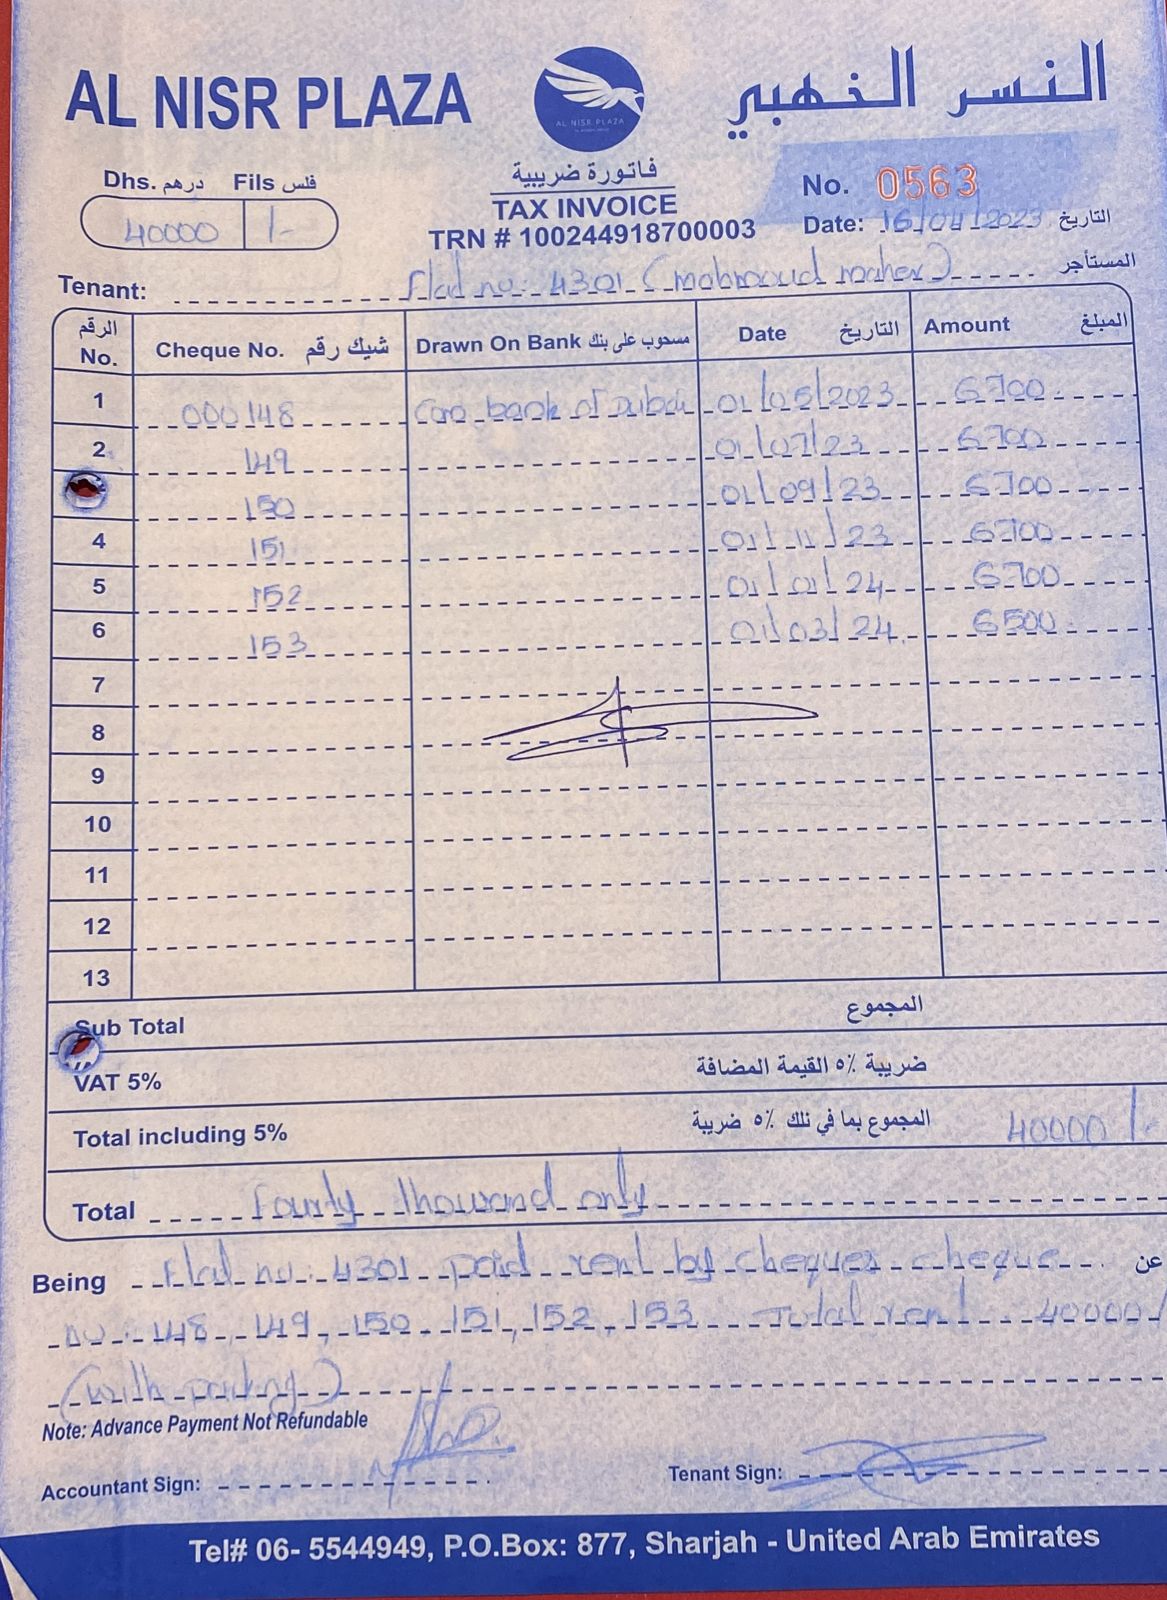 AL NISR PLAZA
النسر الذهبي
AL NISR PLAZA
Dhs. درهم Fils فلس
40000 /-
فاتورة ضريبية
TAX INVOICE
TRN # 100244918700003
No. 0563
Date: 16/04/2023 التاريخ
Tenant: Flat no: 4301 (mahmoud maher) المستأجر
الرقم No. Cheque No. شيك رقم Drawn On Bank مسحوب على بنك Date التاريخ Amount المبلغ
1 000148 bank of Dubai 01/05/2023 6700
2 149 01/07/23 6700
150 01/09/23 6700
4 151 01/11/23 6700
5 152 01/01/24 6700
6 153 01/03/24 6500
7
8
9
10
11
12
13
Sub Total المجموع
VAT 5% ضريبة ٥٪ القيمة المضافة
Total including 5% المجموع بما في تلك ٥٪ ضريبة 40000/-
Total Fourty thousand only
Being Flat no: 4301 paid rent by cheques cheque عن
no: 148, 149, 150, 151, 152, 153 Total rent 40000/
(with parking)
Note: Advance Payment Not Refundable
Accountant Sign: Tenant Sign:
Tel# 06- 5544949, P.O.Box: 877, Sharjah - United Arab Emirates